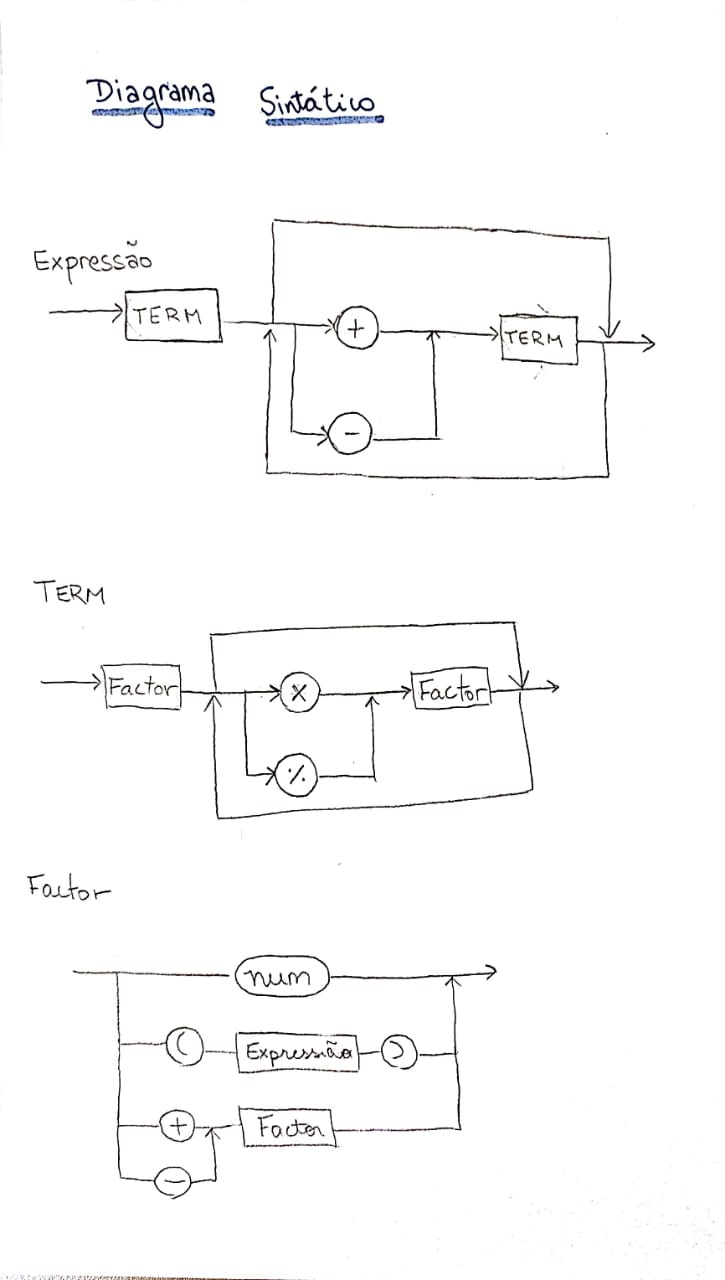 Diagrama Sintático
Expressão
TERM + TERM
-
TERM
Factor × Factor
%
Factor
num
( Expressão )
+ Factor
-